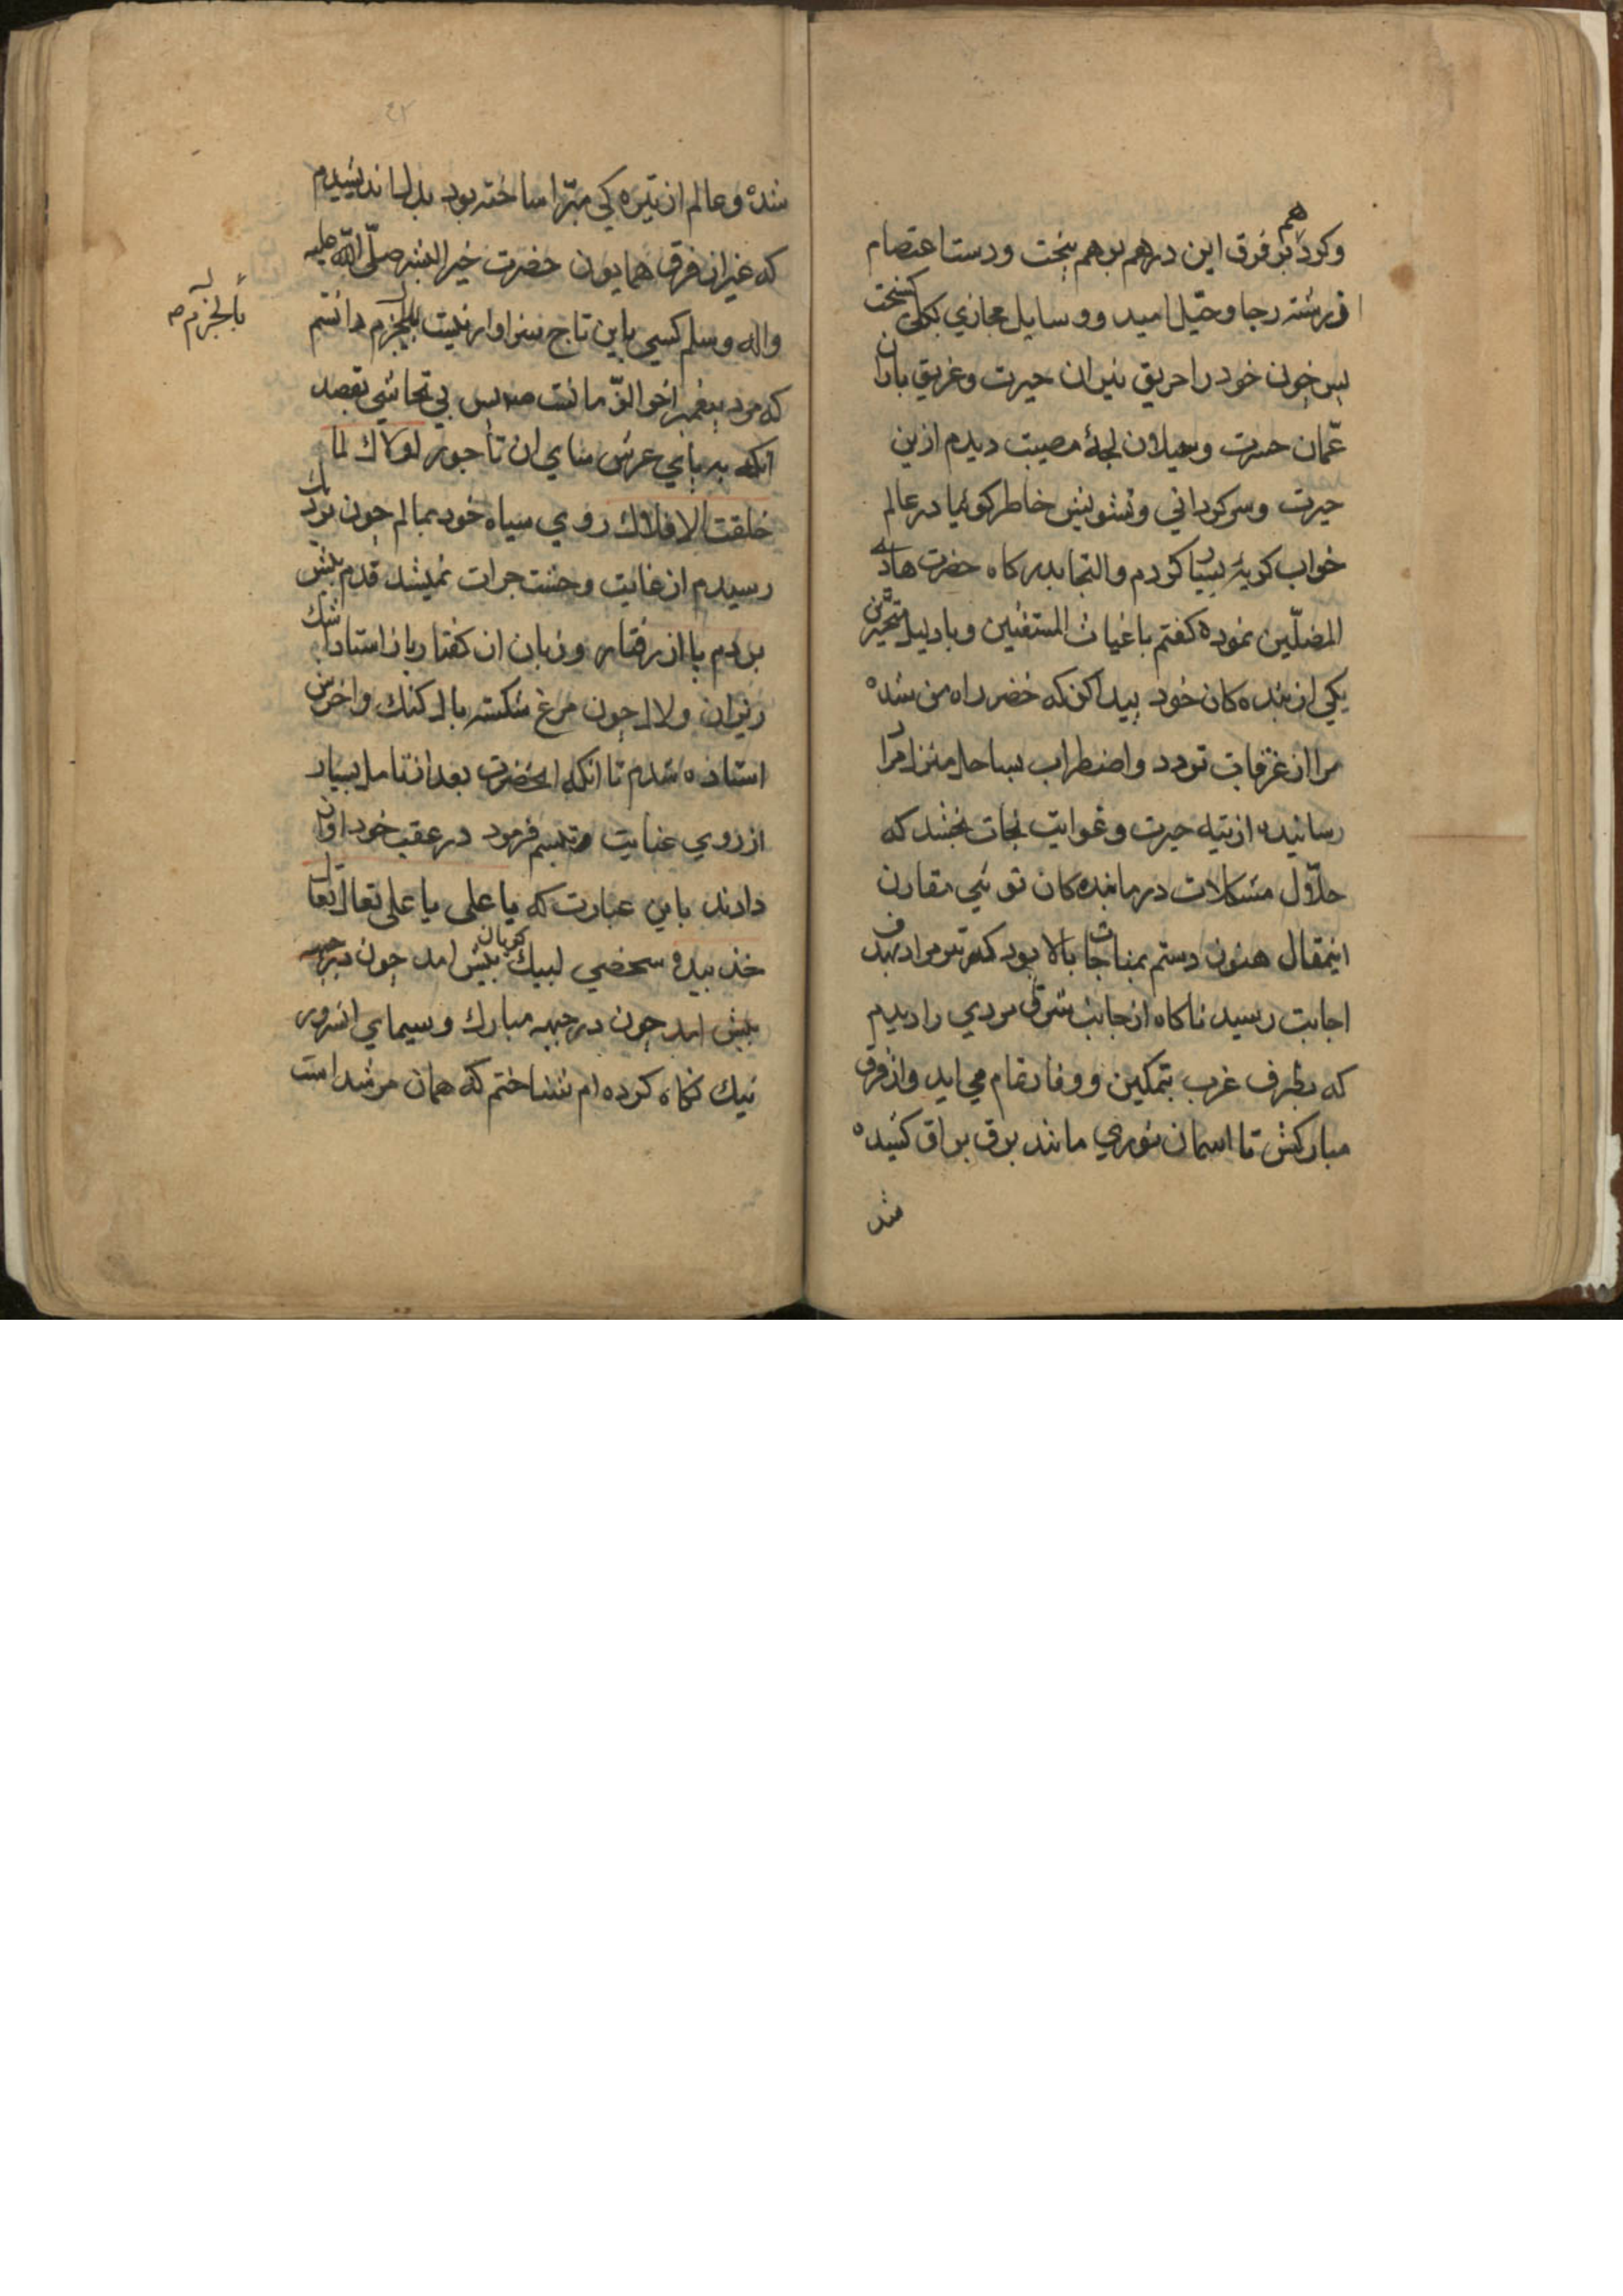 هم
وکرد بر فرق این درهم برهم بیخت ودست اعتصام
از رشته رجا وحیل امید ووسایل مجازی بکلی کسیخت
پس چون خود را حریق نیران حیرت وغریق باران
عمان حسرت وسیلان لجهٔ مصیبت دیدم ازین
حیرت وسرکردانی وتشویش خاطر کوئیا در عالم
خواب کریهٔ بسیار کردم والتجا بدرکاه حضرت هادی
المضلّین نموده کفتم یا غیاث المستغثین ویا دلیل المتحیّرین
یکی از بنده کان خود پیدا کن که خضر راه من شده
مرا از غرقاب تردد واضطراب بساحل منزل مراد
رسانیده از تیه حیرت وغوایت نجات بخشد که
حلّال مشکلات درمانده کان توئی مقارن
اینمقال هنوز دستم بمناجات بالا بود که تیر مراد بهدف
اجابت رسید ناکاه از جانب شرق مردی را دیدم
که بطرف غرب بتمکین ووقار تمام می اید واز فرق
مبارکش تا اسمان نوری مانند برق براق کشیده
شد
شده وعالم از تیره کی مبرّا ساخته بود بدل اندیشیدم
که غیر از فرق همایون حضرت خیر البشر صلّی الله علیه
واله وسلم کسی باین تاج سزاوار نیست بالجزم دانستم
بالجزم صح
که مرد پیغمبر اخر الزمانست پس بی تحاشی بقصد
انکه بر پای عرش سای ان تاجور لولاك لما
خلقت الافلاك روی سیاه خود بمالم چون نزدیك
رسیدم از غایت وحشت جرات نمیشد قدم پیش
بردم پا از رفتار وزبان از کفتار باز استاد اشك
ریزان ولال چون مرغ شکسته بال کنك واخرس
استاده شدم تا انکه انحضرت بعد از تامل بسیار
از روی عنایت وتبسم فرمود در عقب خود اواز
دادند باین عبارت که یا علی یا علی تعال تعال
خذ بیده شخصی لبیك کویان پیش امد چون در جبهه
پیش امد چون در جبهه مبارك وسیمای انسرور
نیك نکاه کرده ام شناختم که همان مرشد است